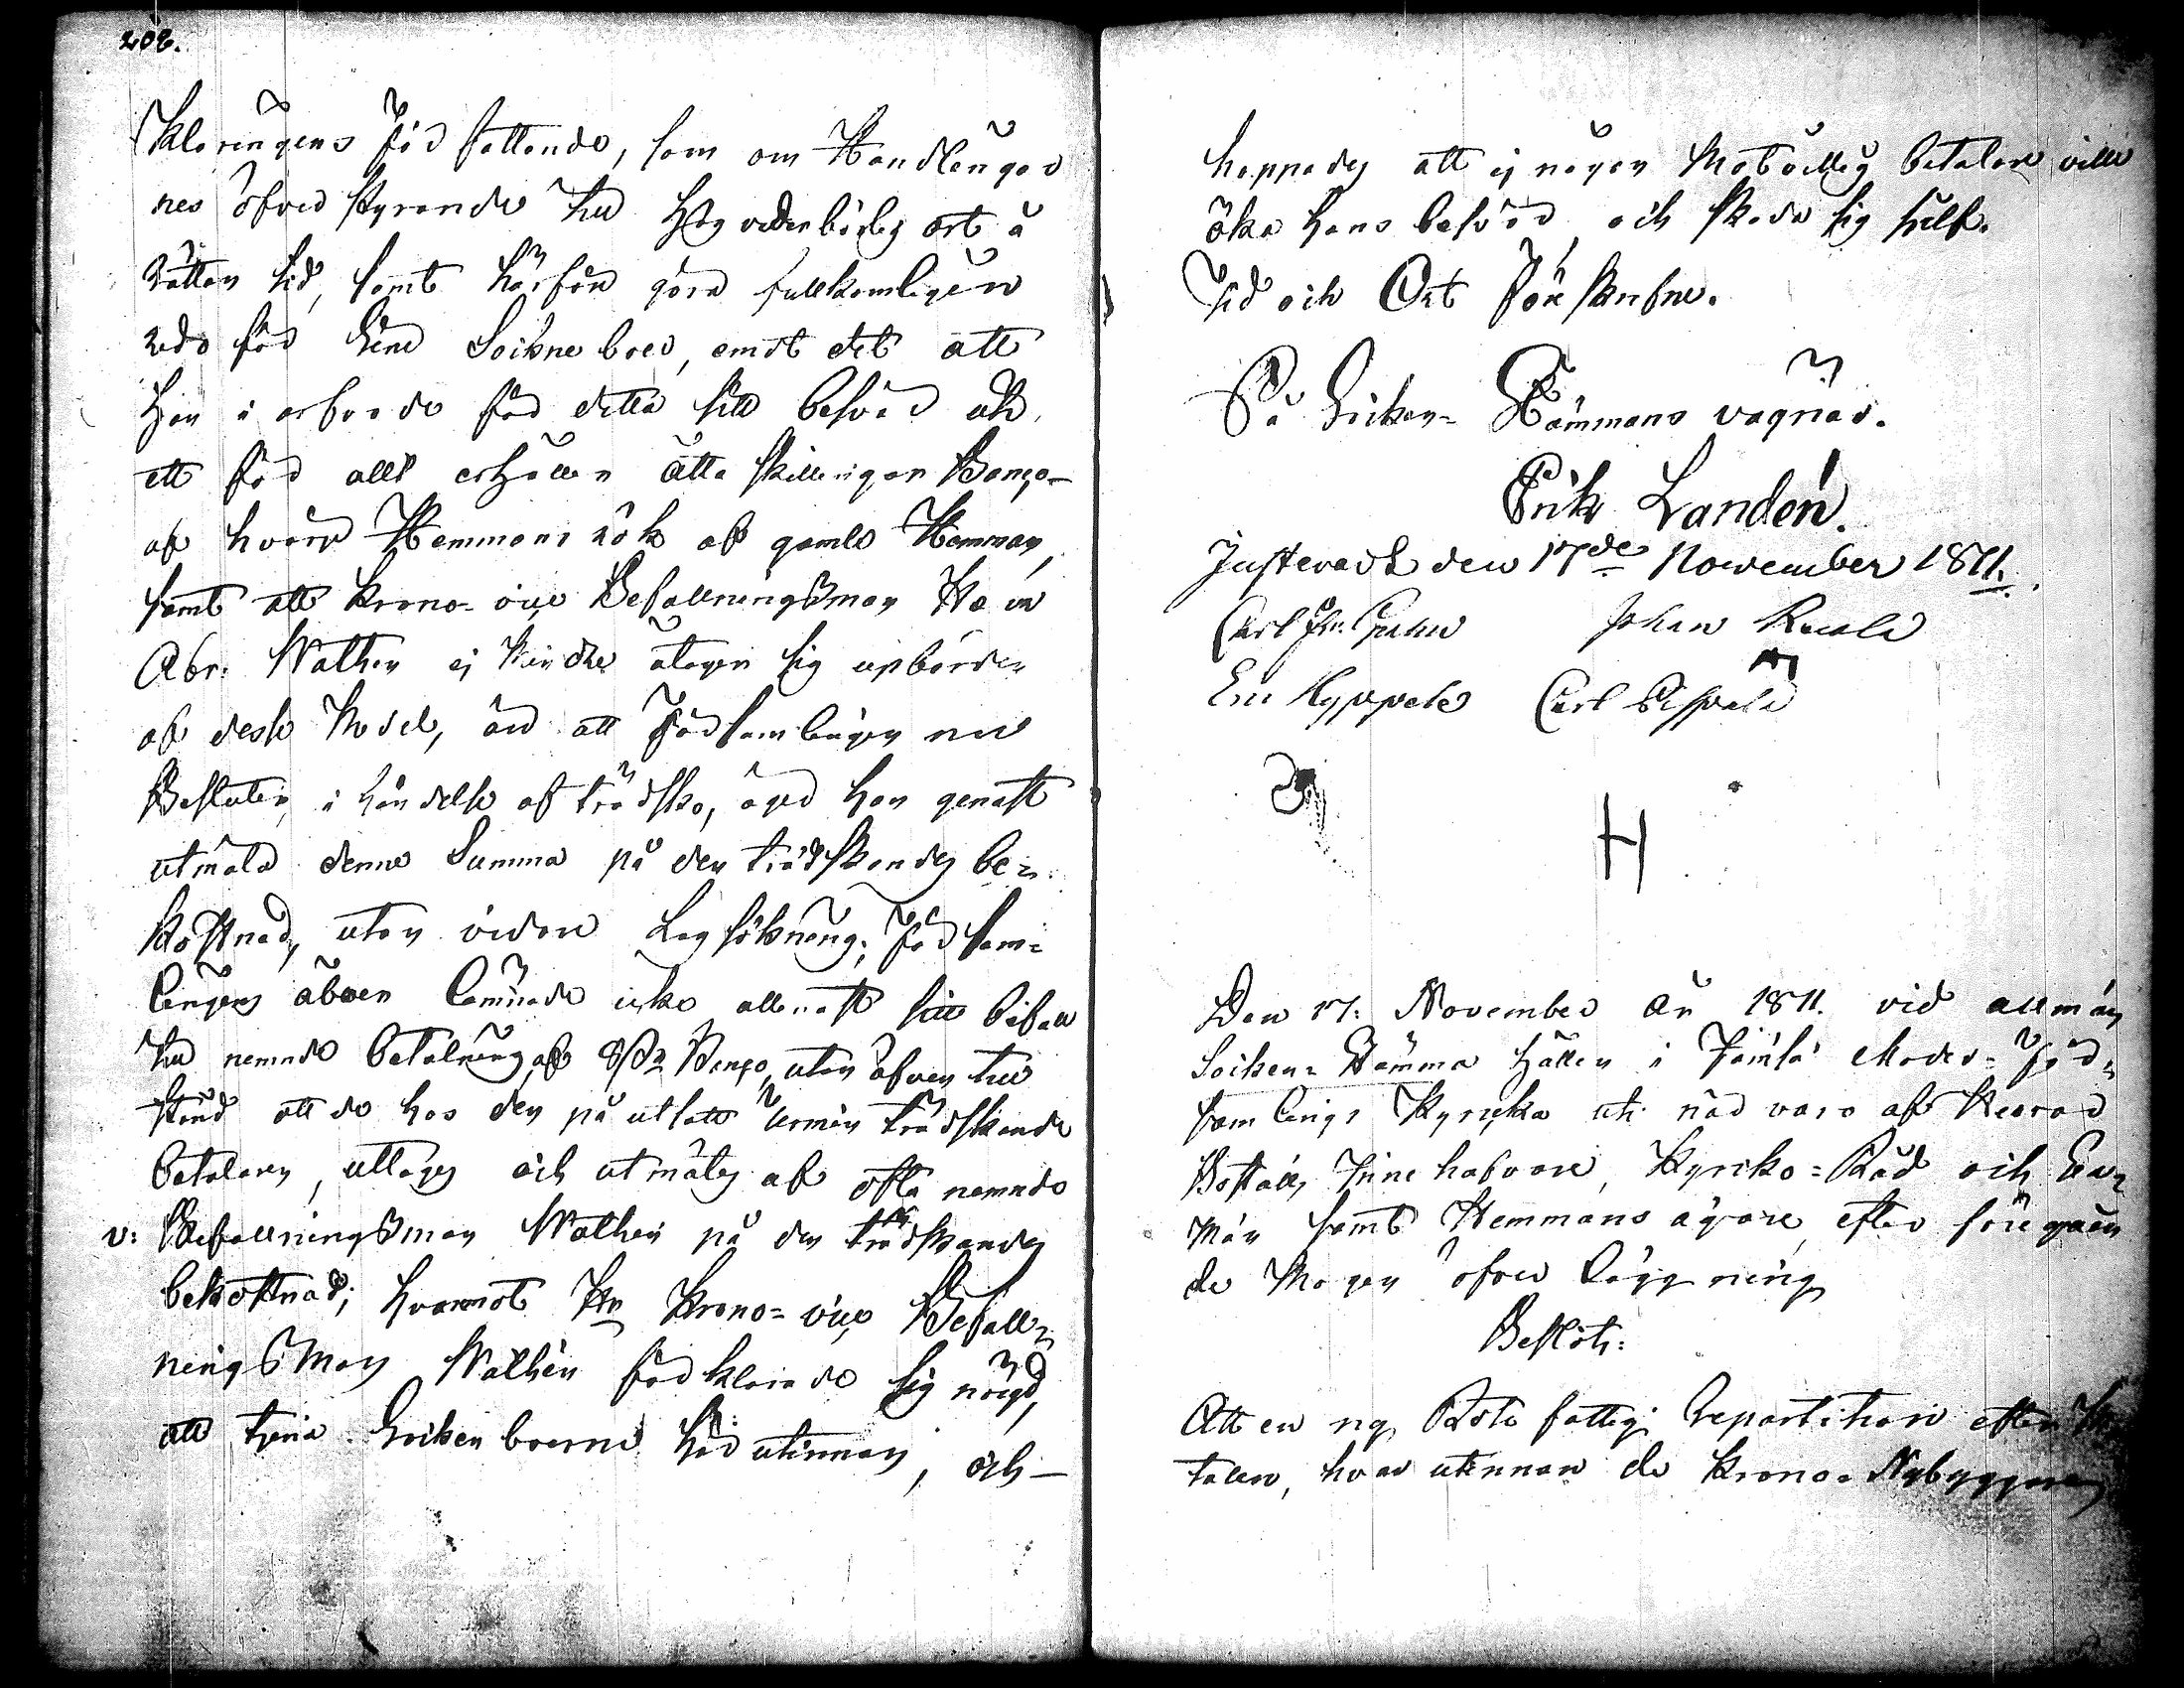 208.
Klaringens Författande, som om Handlingar
nes öfver Styrande till Hög vederbörlig ort å
Rättan tid, samt härför göra fullkomligen
redo för Sine Sockne boer, emot det att
Han i arfvode för detta sitt besvär och
ett för allt erhåller åtta skillingar Banco
af hvarje Hemmans rök af gamla Hemman,
samt att Krono-vice Befallningsman Herr
Abr. Wathén ej åtager sig upbörden
af desse Medel, än att Församlingen nu
Besluter, i händelse af trädsko, äger han genast
utmäta denne Summa på den trädskandes be-
kostnad, utan vidare Lagsökning; Försam-
lingen äfven lämnade icke allenast sitt bifall
till nemnde betalning af 8 sk Banco, utan äfven till-
stånd att de hos den på utsatt termin trädskande
betalaren, uttages och utmätes af ofta nemnde
v: Befallningsman Wathén på den trädskandes
bekostnad; hvaremot Hr Krono-vice Befall-
ningsman Wathén förklarade sig nöigd,
att tjena Sockenboerne härutinnan, och
hoppades att ej någon Motvillig betalare ville
öka hans besvär, och skada sig sielf.
Tid och Ort förskrefne.
På Socken-Stämmans vägnar.
Erik Landén.
Justeradt den 17de November 1811.
Carl Johan
Eric Hyppeli Carl
H
Den 17. November År 1811. vid allmän
Socken-Stämma hållen i Jämsä Moder-För-
samlings Kyrcka uti närvaro af Herrar
Boställs Innehafvare, Kyrko-Råd och Sex-
män samt Hemmans ägare, efter föregåen
de Mogen öfver läggning
Beslöts:
Att en ny Rote fattig Repartition efter
talen, hvar utinnan de Krono-Nybyggare